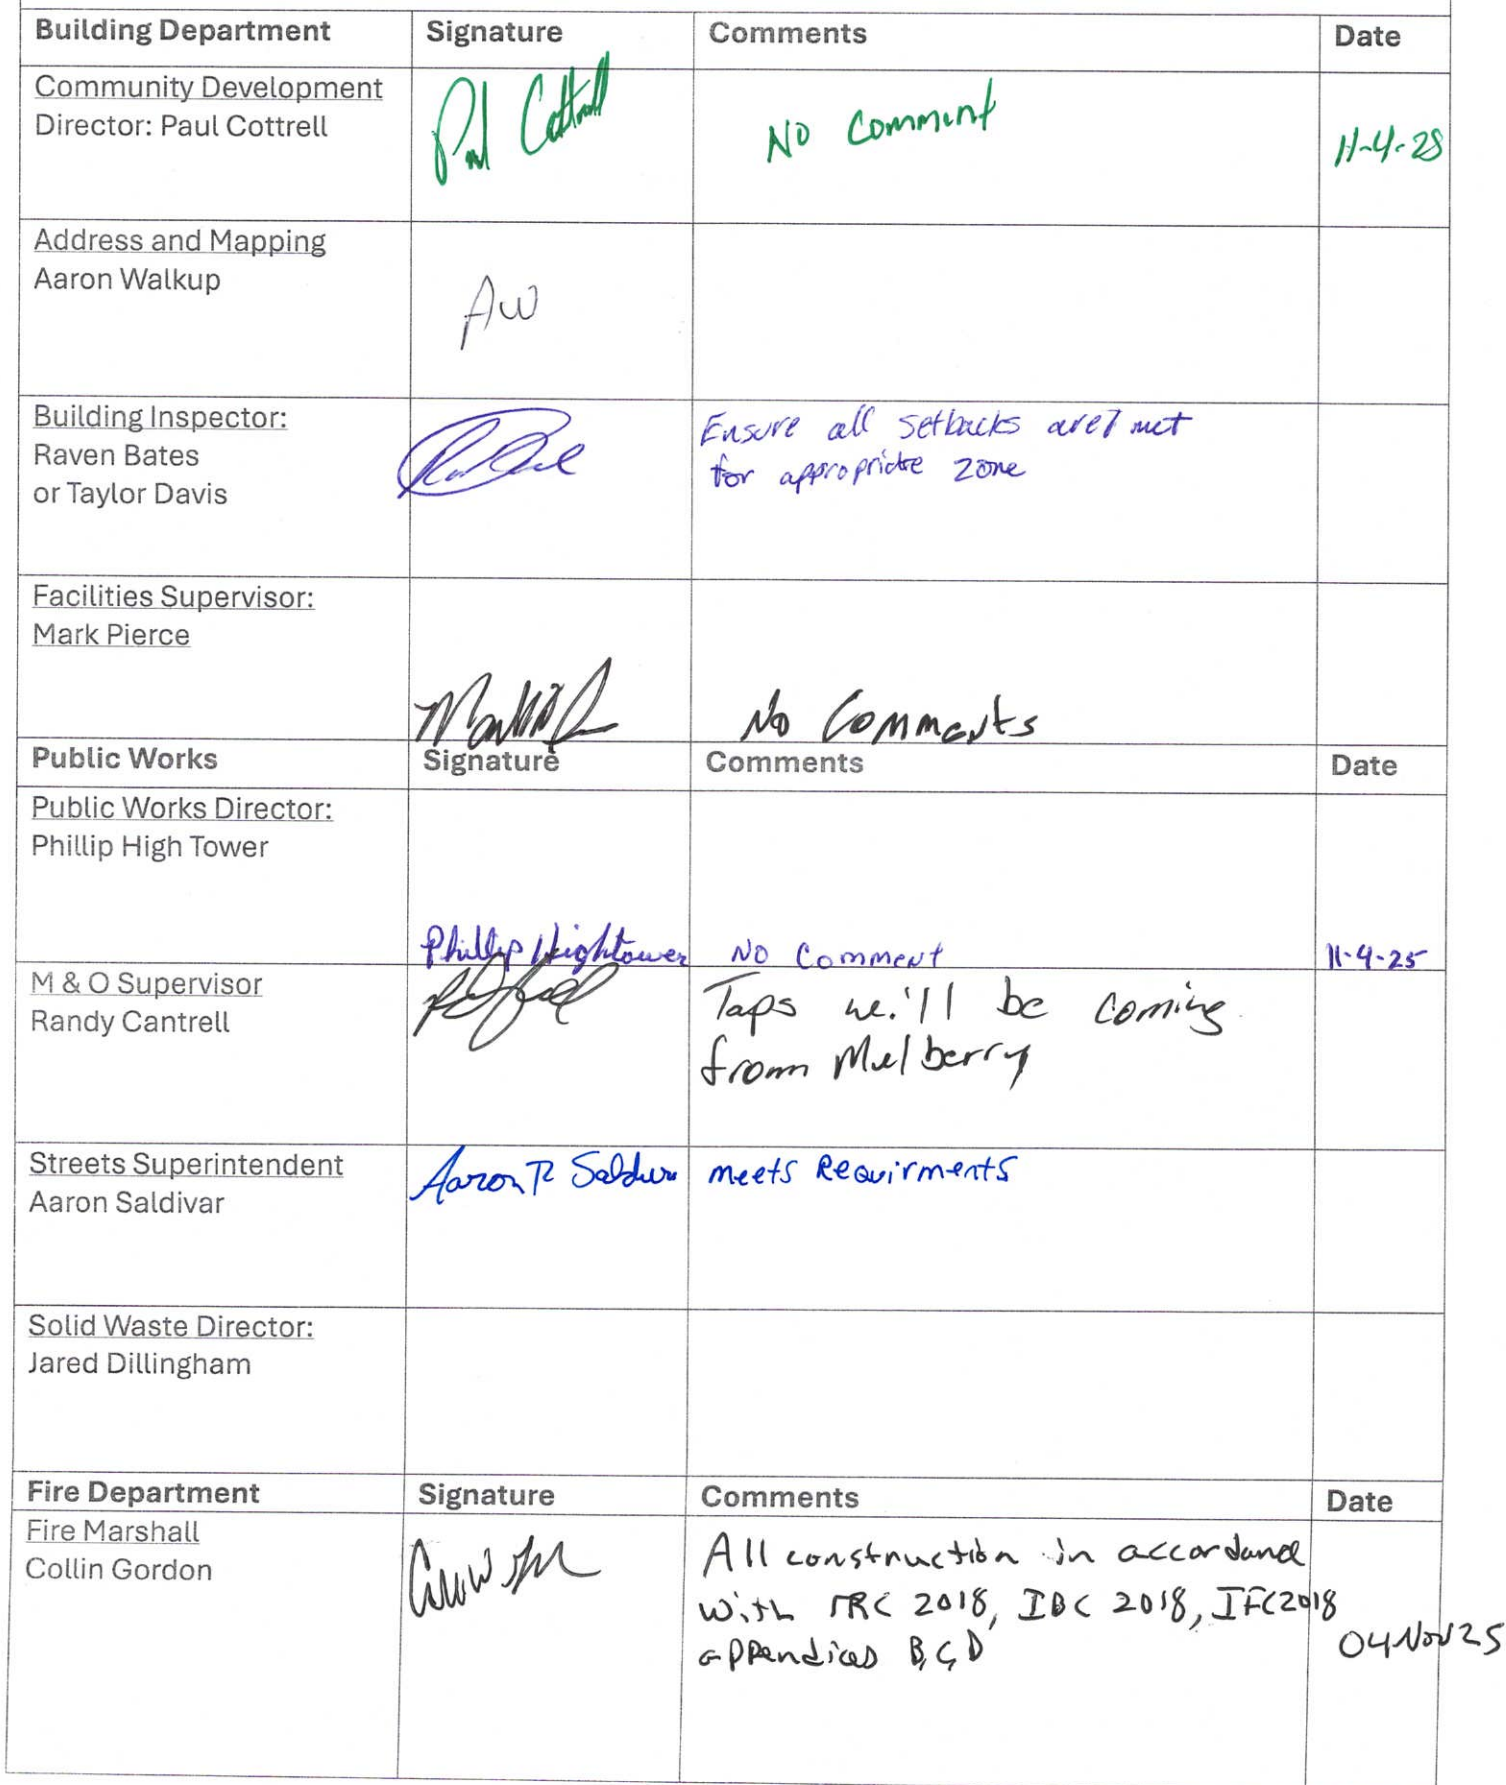 Building Department Signature Comments Date
Community Development
Director: Paul Cottrell
Paul Cottrell
No Comment
11-4-25
Address and Mapping
Aaron Walkup
AW
Building Inspector:
Raven Bates
or Taylor Davis
Ensure all setbacks are met
for appropriate zone
Facilities Supervisor:
Mark Pierce
No Comments
Public Works Signature Comments Date
Public Works Director:
Phillip High Tower
Phillip Hightower No Comment 11-4-25
M & O Supervisor
Randy Cantrell
Taps we'll be coming
from Mulberry
Streets Superintendent
Aaron Saldivar
Aaron R Saldivar meets Requirments
Solid Waste Director:
Jared Dillingham
Fire Department Signature Comments Date
Fire Marshall
Collin Gordon
All construction in accordance
with IRC 2018, IBC 2018, IFC2018
appendices B, C, D
04Nov25